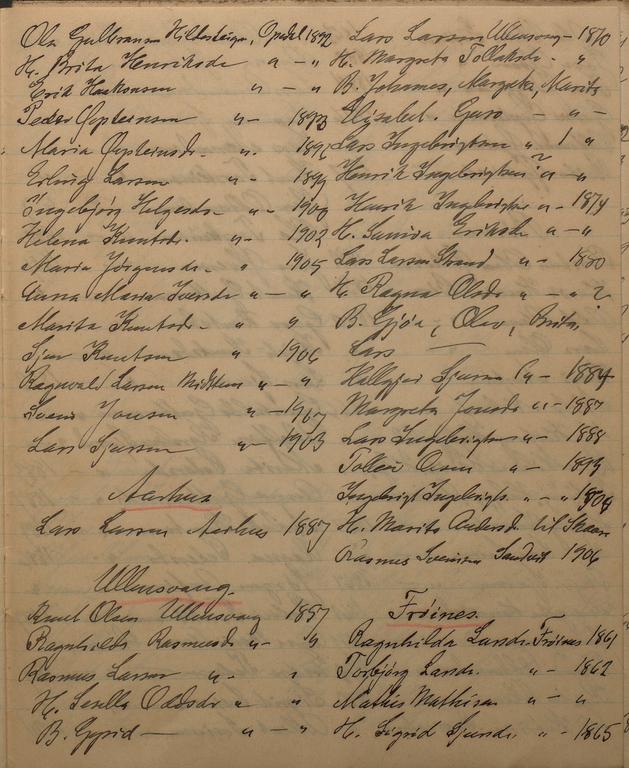 Ola Gulbransen Hildesteigen, Opedal 1892
H. Brita Henriksde " - "
Erik Haakonsen " - "
Peder Øysteinsen " - 1893
Maria Øysteinsdr. - ".
Erling Larsen " - 1899
Ingebjørg Helgesdr. " - 1900
Helena Knutsdr. " - 1902
Maria Jørgensdr. " 1905
Anna Maria Iversdr " - "
Marita Knutsdr - " "
Sjur Knutsen " 1906
Ragnvald Larsen Midttun " - "
Svein Jonsen " - 1907
Lars Sjursen " - 1903
Aarhus
Lars Larsen Aarhus 1887
Ullensvang.
Knut Olsen Ullensvang 1857
Ragnhilde Rasmusdr " - "
Rasmus Larsen " - "
H. Sesella Oddsdr " "
B. Gyrid - " - "
Lars Larsen Ullensvang - 1870
H. Margreta Tollaksdr. - "
B. Johannes, Margreta, Marita
Elisabet. Guro - " -
Lars Ingebrigtsen " "
Henrik Ingebrigtsen? " - "
Henrik Ingebrigtsen " - 1874
H. Eriksdr " - "
Lars Larsen Strand " - 1880
H. Ragna Olsdr " - " ?
B. Gjøa, Olav, Brita
Lars
Hallgjer Sjursdr " - 1884
Margreta Jonsdr " - 1887
Lars Ingebrigtsen " - 1888
Olsen " - 1893
Ingebrigt Ingebrigts. " - "
H. Marita Andersdr til
Rasmus Sveinsen Sandvik 1906
Frøines.
Ragnhilda Larsdr. Frøines 1861
Torbjørg Larsdr. " - 1862
Mathis Mathisen " - "
H. Sigrid Sjursdr. " - 1865